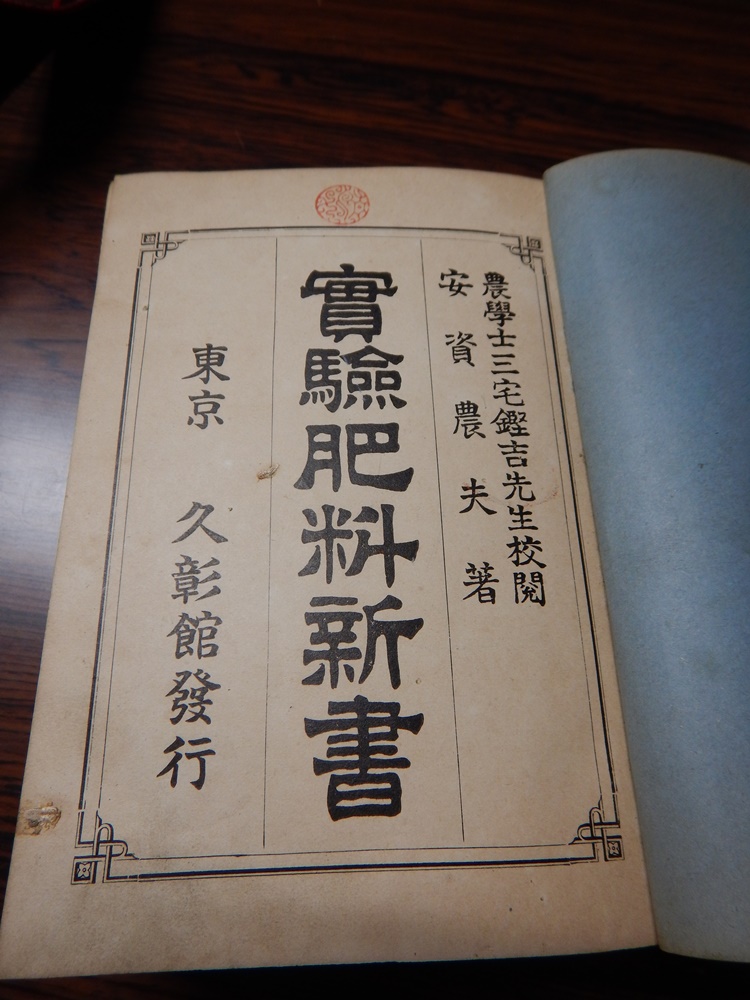 農學士三宅鏗吉先生校閲
安資農夫著
實驗肥料新書
東京 久彰館發行